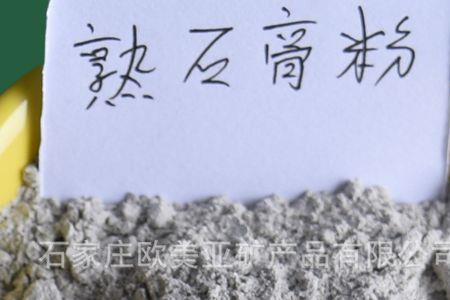 熟石膏粉
石家庄欧美亚矿产品有限公司